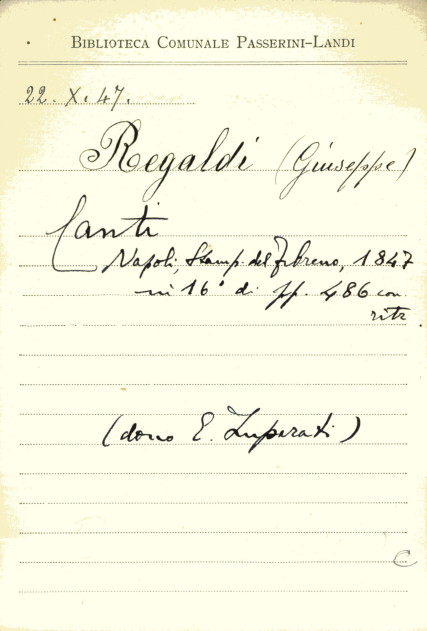 BIBLIOTECA COMUNALE PASSERINI-LANDI
22. X. 47.
Regaldi (Giuseppe)
Canti
Napoli, Stamp. del Fibreno, 1847
in 16° di pp. 486 con
ritr
(dono E. Imparati)
C